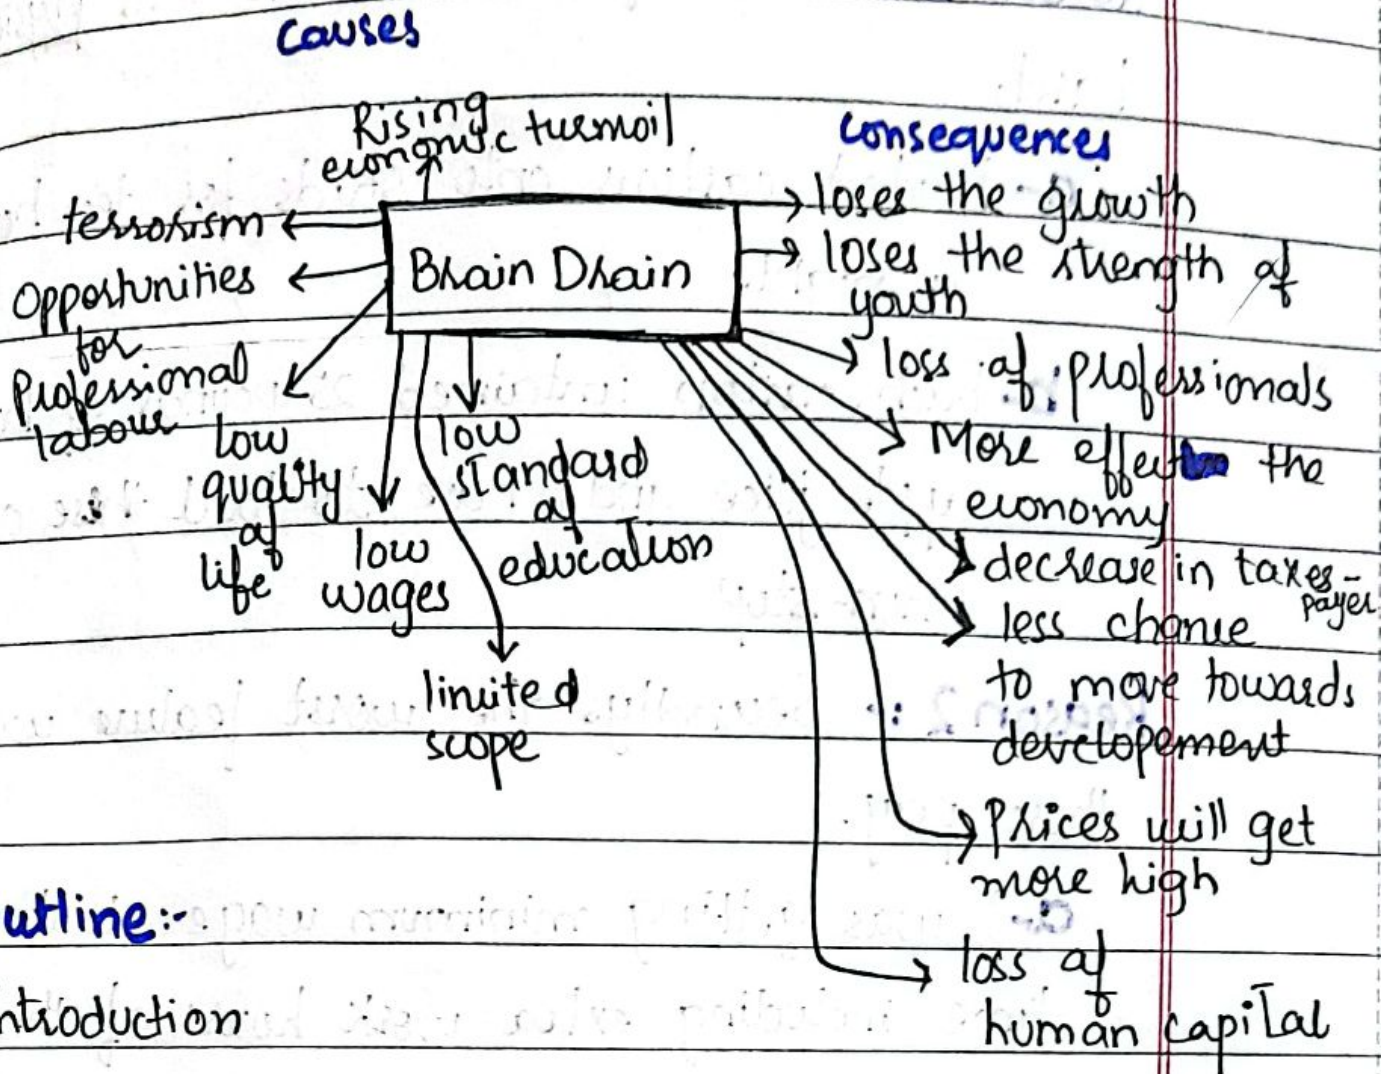 Causes
Rising
economic turmoil
terrorism
Opportunities
for
Professional
labour
low
quality
of
life
low
wages
low
standard
of
education
limited
scope
Brain Drain
Consequences
loses the growth
loses the strength of
youth
loss of professionals
More effect the
economy
decrease in taxes-
payer
less chance
to move towards
developement
Prices will get
more high
loss of
human capital
utline:-
ntroduction